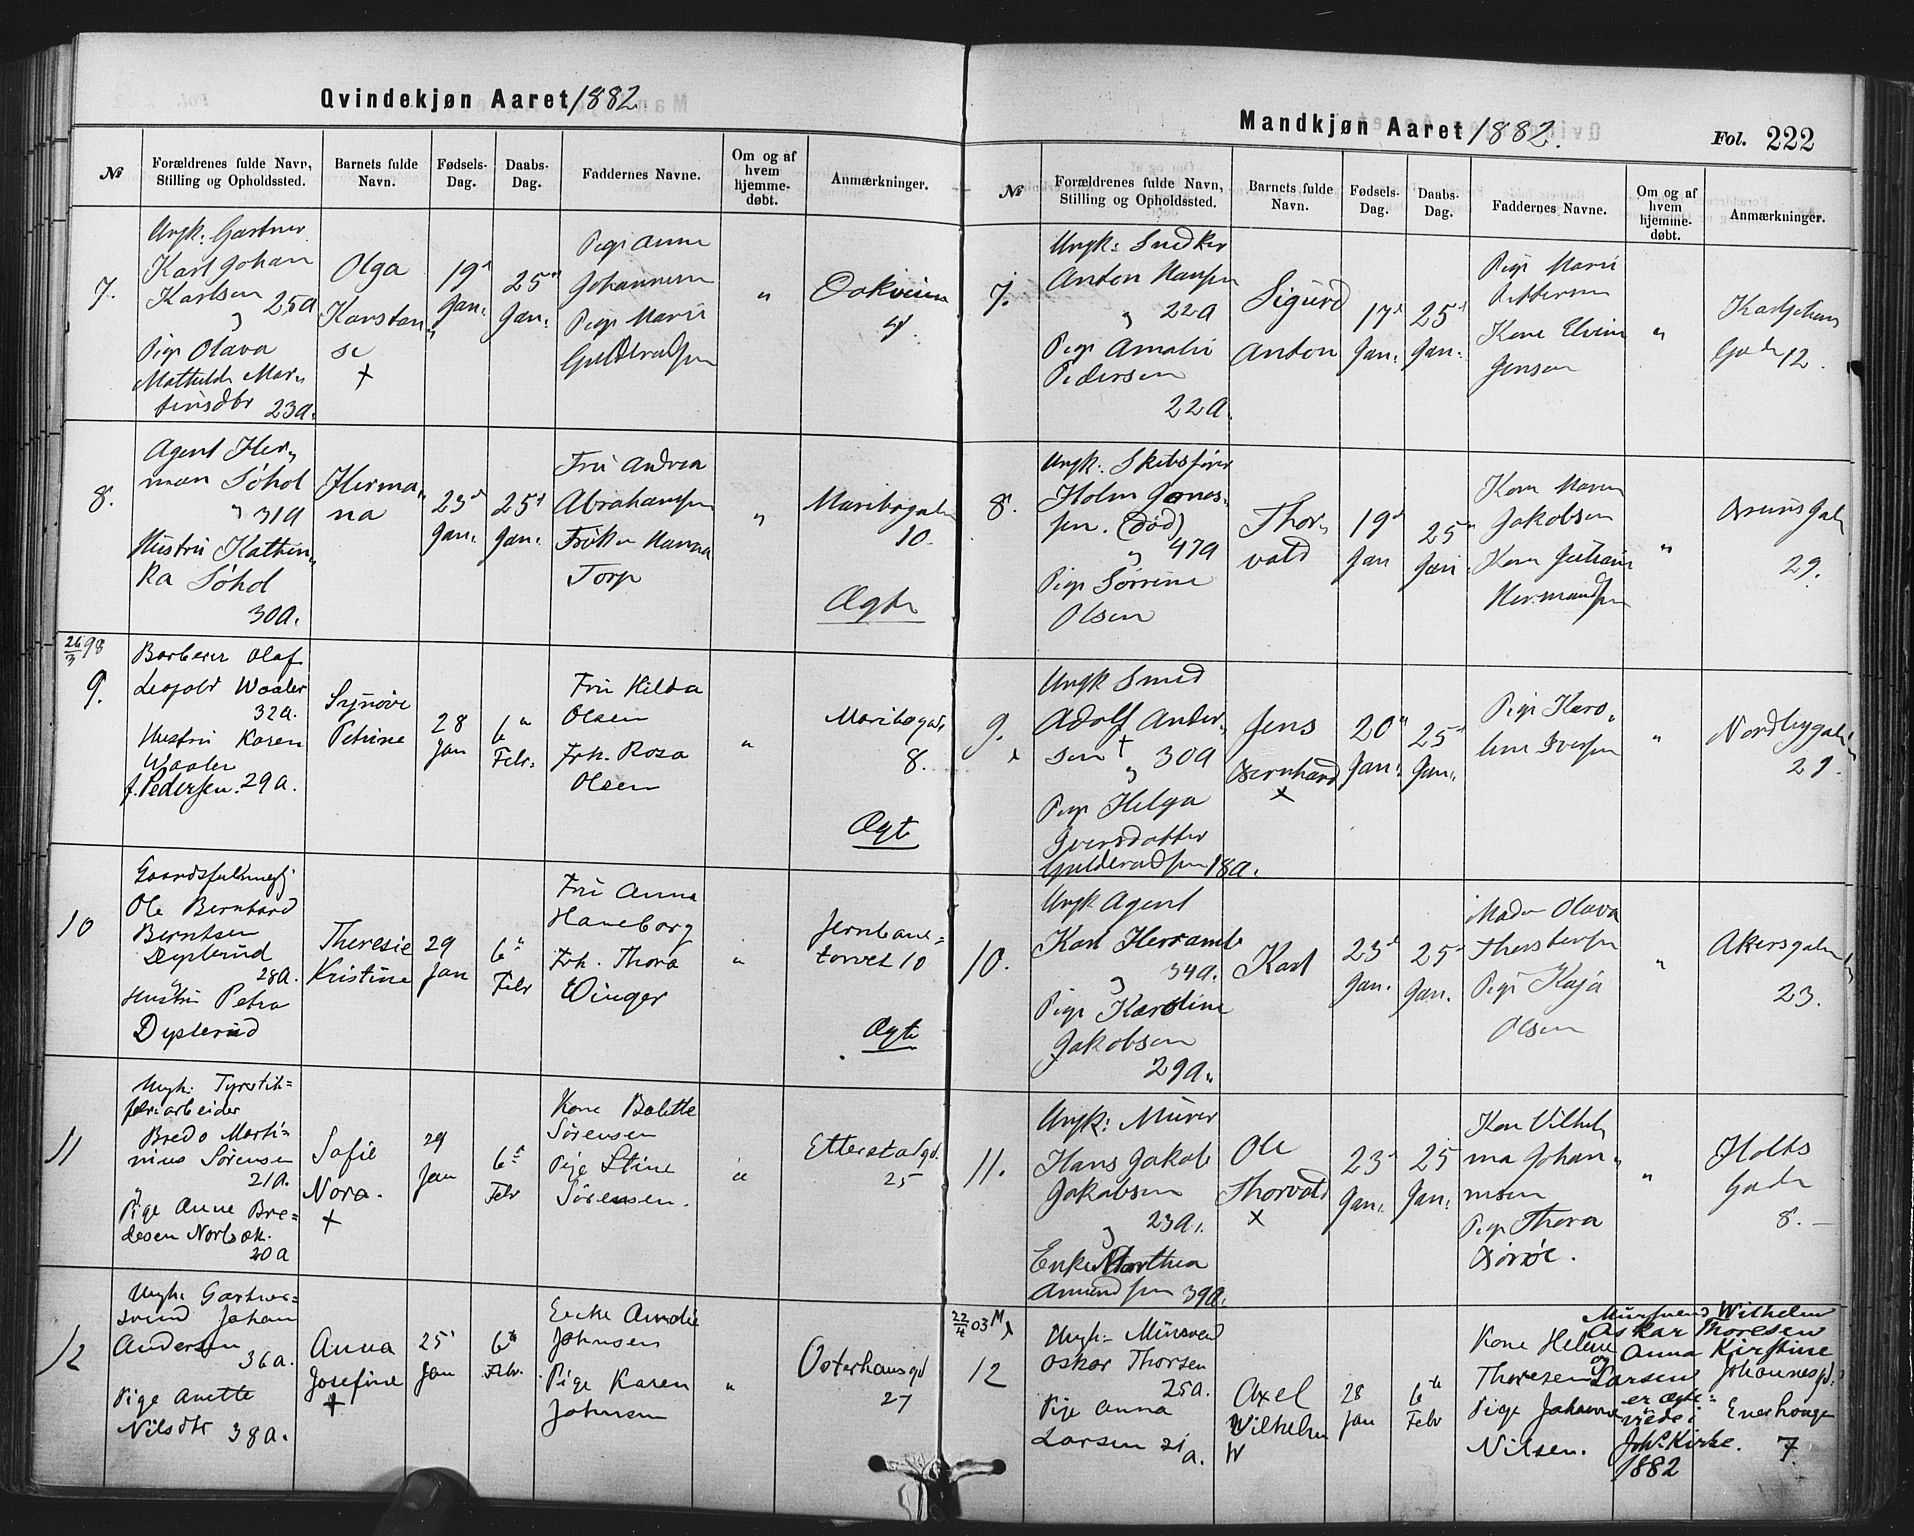 Qvindekjøn Aaret 1882
№
Forældrenes fulde Navn,
Stilling og Opholdssted.
Barnets fulde
Navn.
Fødsels-
Dag.
Daabs-
Dag.
Faddernes Navne.
Om og af
hvem
hjemme-
døbt.
Anmærkninger.
7.
Ungk: Gartner
Karl Johan
Karlsen 25 a
Pige Olava
Mathilde Mar„
tinsdtr 23 a.
Olga
Karstan„
se
+
19d
Jan.
25d
Jan.
Pige Anne
Johannesen
Pige Marie
Guldbrandsen
"
4.
8.
Agent Her„
man Søhol
" 31 a
Hustru Kathin„
ka Søhol
30 a.
Herma„
na
23d
Jan.
25d
Jan.
Fru Andrea
Abrahamsen
Frøken Hanna
Torp
"
Maribogaden
10.
Ægte
26/3 98
9.
Barberer Olaf
Leopold Waaler
32 a.
Hustru Karen
Waaler
f. Pedersen. 29 a.
Synøve
Petrine
28
Jan
6te
Febr.
Fru Hilda
Olsen
Frk. Rosa
Olsen
"
Maribogad.
8.
Ægte
10
Gaardsfuldmegt.
Ole Bernhard
Berntsen
Dysterud
28 a.
Hustru Petra
Dysterud
Theresie
Kristine
29
Jan
6te
Febr
Fru Anna
Haneborg
Frk. Thora
Winger
"
Jernbane=
torvet 10
Ægte
11
Ungk. Fyrstik=
fabr. arbeider
Bredo Marti=
nius Sørensen
21 a.
"
Pige Anne Bre=
desen Norbæk.
20 a
Sofie
Nora.
+
29
Jan
6te
Febr
Kone Bolette
Sørensen
Pige Stine
Sørensen.
"
Etterstadgd.
25
12
Ungk. Gartner=
svend Johan
Andersen
36 a.
Pige Anette
Nilsdtr 38 a.
Anna
Josefine
+
25
Jan
6te
Febr.
Enke Amalie
Johnsen
Pige Karen
Johnsen
"
Osterhausgd
27
Mandkjøn Aaret 1882.
Fol. 222
№
Forældrenes fulde Navn,
Stilling og Opholdssted.
Barnets fulde
Navn.
Fødsels-
Dag.
Daabs-
Dag.
Faddernes Navne.
Om og af
hvem
hjemme-
døbt.
Anmærkninger.
7.
Ungk: Snedker
Anton Hansen
" 22 a
Pige Amalie
Pedersen
22 a.
Sigurd
Anton
17d
Jan.
25d
Jan.
Pige Marie
Pettersen
Kone Elvine
Jensen
"
Karl Johans
Gade 12.
8.
Ungk: Skibsfører
Holm Jonas„
sen. (død)
" 47 a
Pige Sørrine
Olsen
Thor„
vald
19d
Jan
25d
Jan.
Kone Maren
Jakobsen
Kone Juliane
Hermandsen
"
Brunsgaden
29.
9.
x
Ungk Smed
Adolf Ander„
sen + 30 a
"
Pige Helga
Iversdatter
Gulderudsen 18 a.
Jens
Bernhard
x
20d
Jan.
25d
Jan.
Pige Karo„
line Iversen
"
Nordbygaden
21.
10.
Ungk Agent
Karl Herramb
" 34 a.
Pige Karoline
Jakobsen
29 a.
Karl
23d
Jan.
25d
Jan.
Madm Olava
Thorstensen
Pige Kaja
Olsen
"
Akersgaden
23.
11.
Ungk: Murer
Hans Jakob
Jakobsen
" 23 a.
Enke Marthea
Amundsen 39 a.
Ole
Thorvald
x
23d
Jan.
25
Jan.
Kone Vilhel„
ma Johan„
nesen
Pige Thora
Børøe.
"
Holts
Gade
8.—
22/4 03 M
x
12
Ungk. Mursvend
Oskar Thorsen
25 a.
Pige Anna
Larsen 21
a.
Axel
Wilhelm
W
28
Jan
6te
Febr
Kone Helene
Thoresen
Pige Johanne
Nilsen.
Mursvend Wilhelm
Oskar Thoresen
og Anna Kirstine
Larsen
er ægte=
viede i
Johs. Kirke.
1882
Johannesgd.
Enerhaugen
7.